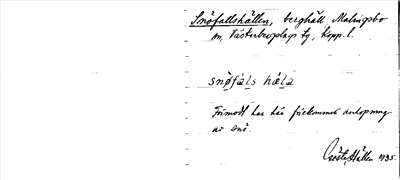 Snöfallshällen, berghäll Malingsbo
sn, Västerbergslags tg, Kopp. l.
snøfals hæla
Förmodl har här förekommit anhopning
av snö.
Gösta Hállen 1935.